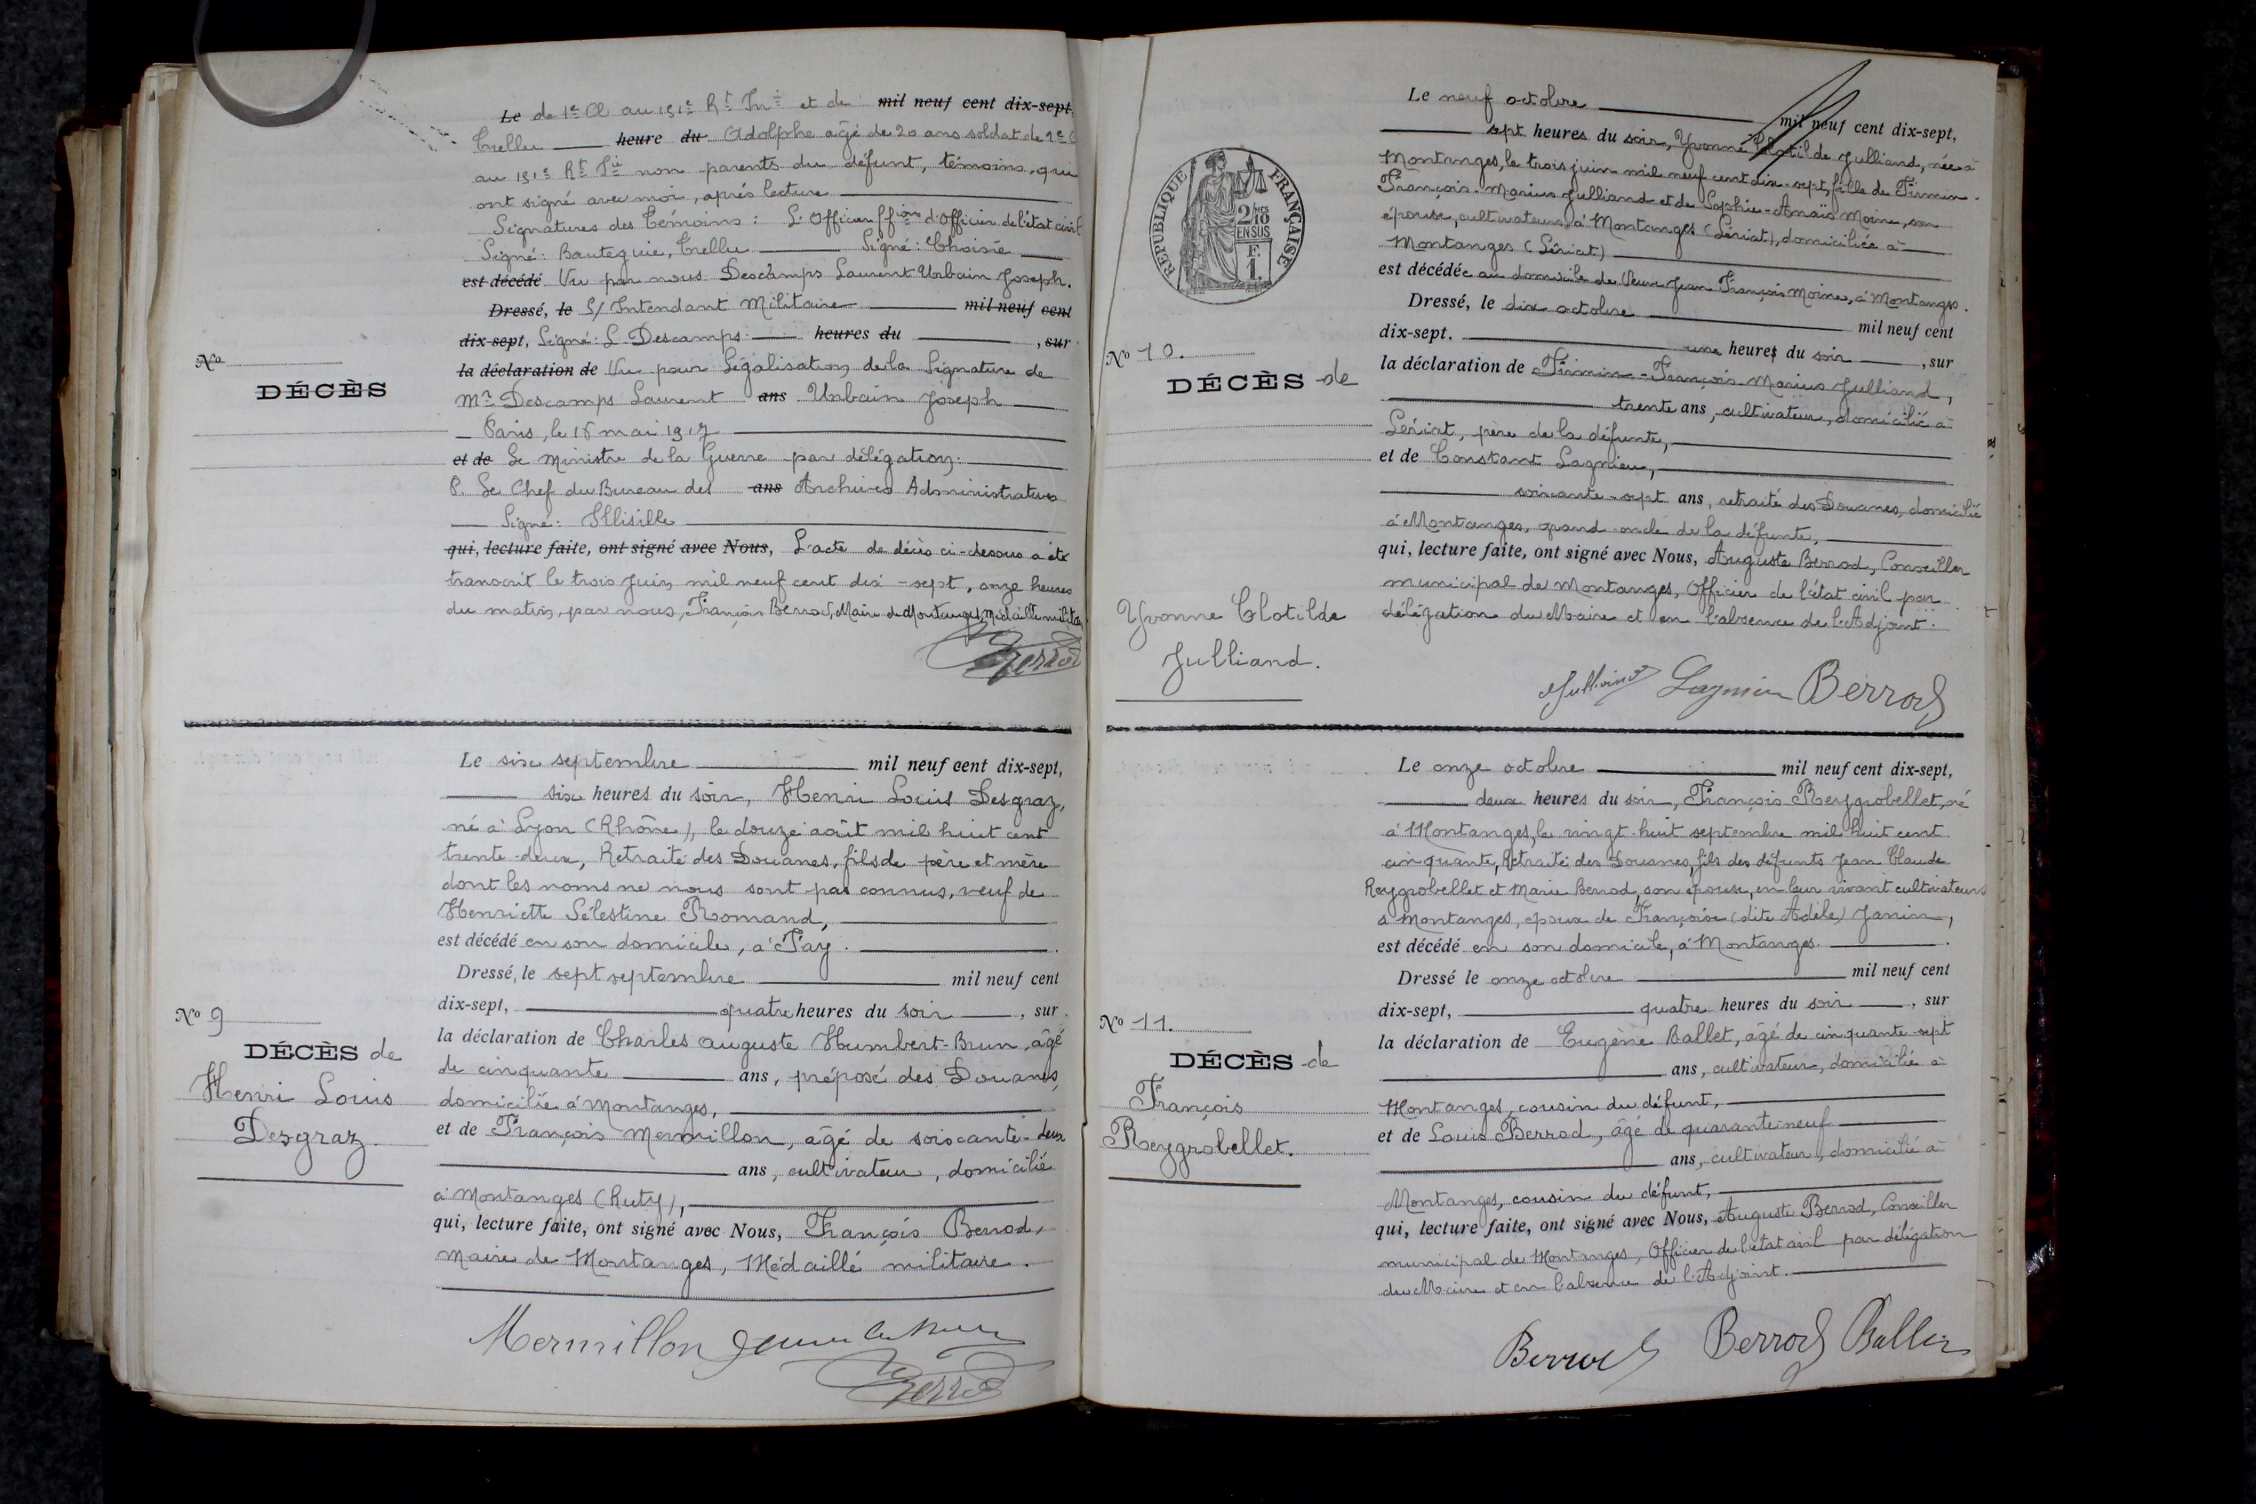 Le de 1e Cl au 151e Rt Inie et de mil neuf cent dix-sept,
Trellu heure du Adolphe âgé de 20 ans soldat de 2e C
au 151e Rt Iie non parents du défunt, témoins, qui
ont signé avec moi, après lecture
Signatures des Témoins : L'Officier ffions d'officier de l'état civil
Signé : Bauteguie, Trellu Signé : Choisie
est décédé Vu par nous Deschamps Laurent Urbain Joseph.
Dressé, le S/ Intendant Militaire mil neuf cent
dix-sept, Signé : L Descamps heures du , sur
la déclaration de Vu pour Légalisation de la Signature de
Mr Descamps Laurent ans Urbain Joseph
Paris, le 15 mai 1917
et de Le Ministre de la Guerre par délégation.
P. Le Chef du Bureau des ans Archives Administratives
Signé :
qui, lecture faite, ont signé avec Nous, L'acte de décès ci-dessus a été
transcrit le trois Juin mil neuf cent dix-sept, onze heures
du matin, par nous, François Berrod, Maire de Montanges, Médaillé militaire
Berrod
No
DÉCÈS
Le six septembre mil neuf cent dix-sept,
six heures du soir, Henri Louis Desgraz,
né à Lyon (Rhône), le douze août mil huit cent
trente-deux, Retraité des Douanes, fils de père et mère
dont les noms ne nous sont pas connus, veuf de
Henriette Sélestine Romand,
est décédé en son domicile, à Fay.
Dressé, le sept septembre mil neuf cent
dix-sept, quatre heures du soir , sur
la déclaration de Charles Auguste Humbert-Brun, âgé
de cinquante ans, préposé des Douanes,
domicilié à Montanges,
et de François Mermillon, âgé de soixante-deux
ans, cultivateur, domicilié
à Montanges (Ruty),
qui, lecture faite, ont signé avec Nous, François Berrod,
Maire de Montanges, Médaillé militaire.
Mermillon
Berrod
No 9
DÉCÈS de
Henri Louis
Desgraz
RÉPUBLIQUE FRANÇAISE
2/10
EN SUS
F.
1.
Le neuf octobre mil neuf cent dix-sept,
sept heures du soir, Yvonne Clotilde Julliand, née à
Montanges, le trois juin mil neuf cent dix-sept, fille de Firmin-
François-Marius Julliand et de Sophie-Anaïs Moine, son
épouse, cultivateurs à Montanges (Lériat), domiciliée à
Montanges (Lériat)
est décédée au domicile de Veuve Jean François Moine, à Montanges.
Dressé, le dix octobre mil neuf cent
dix-sept. une heures du soir , sur
la déclaration de Firmin-François-Marius Julliand,
trente ans, cultivateur, domicilié à
Lériat, père de la défunte,
et de Constant Lagnieu,
soixante-sept ans, retraité des Douanes, domicilié
à Montanges, grand-oncle de la défunte,
qui, lecture faite, ont signé avec Nous, Auguste Berrod, Conseiller
municipal de Montanges, Officier de l'état civil par
délégation du Maire et en l'absence de l'Adjoint.
Julliand Lagnieu Berrod
No 10.
DÉCÈS de
Yvonne Clotilde
Julliand.
Le onze octobre mil neuf cent dix-sept,
deux heures du soir, François Reygrobellet, né
à Montanges, le vingt-huit septembre mil huit cent
cinquante, Retraité des Douanes, fils des défunts Jean Claude
Reygrobellet et Marie Berrod, son épouse, en leur vivant cultivateurs
à Montanges, époux de Françoise (dite Adèle) Janin,
est décédé en son domicile, à Montanges.
Dressé le onze octobre mil neuf cent
dix-sept, quatre heures du soir , sur
la déclaration de Eugène Ballet, âgé de cinquante-sept
ans, cultivateur, domicilié à
Montanges, cousin du défunt,
et de Louis Berrod, âgé de quarante-neuf
ans, cultivateur, domicilié à
Montanges, cousin du défunt,
qui, lecture faite, ont signé avec Nous, Auguste Berrod, Conseiller
municipal de Montanges, Officier de l'état civil par délégation
du Maire et en l'absence de l'Adjoint.
Berrod Berrod Ballet
No 11.
DÉCÈS de
François
Reygrobellet.